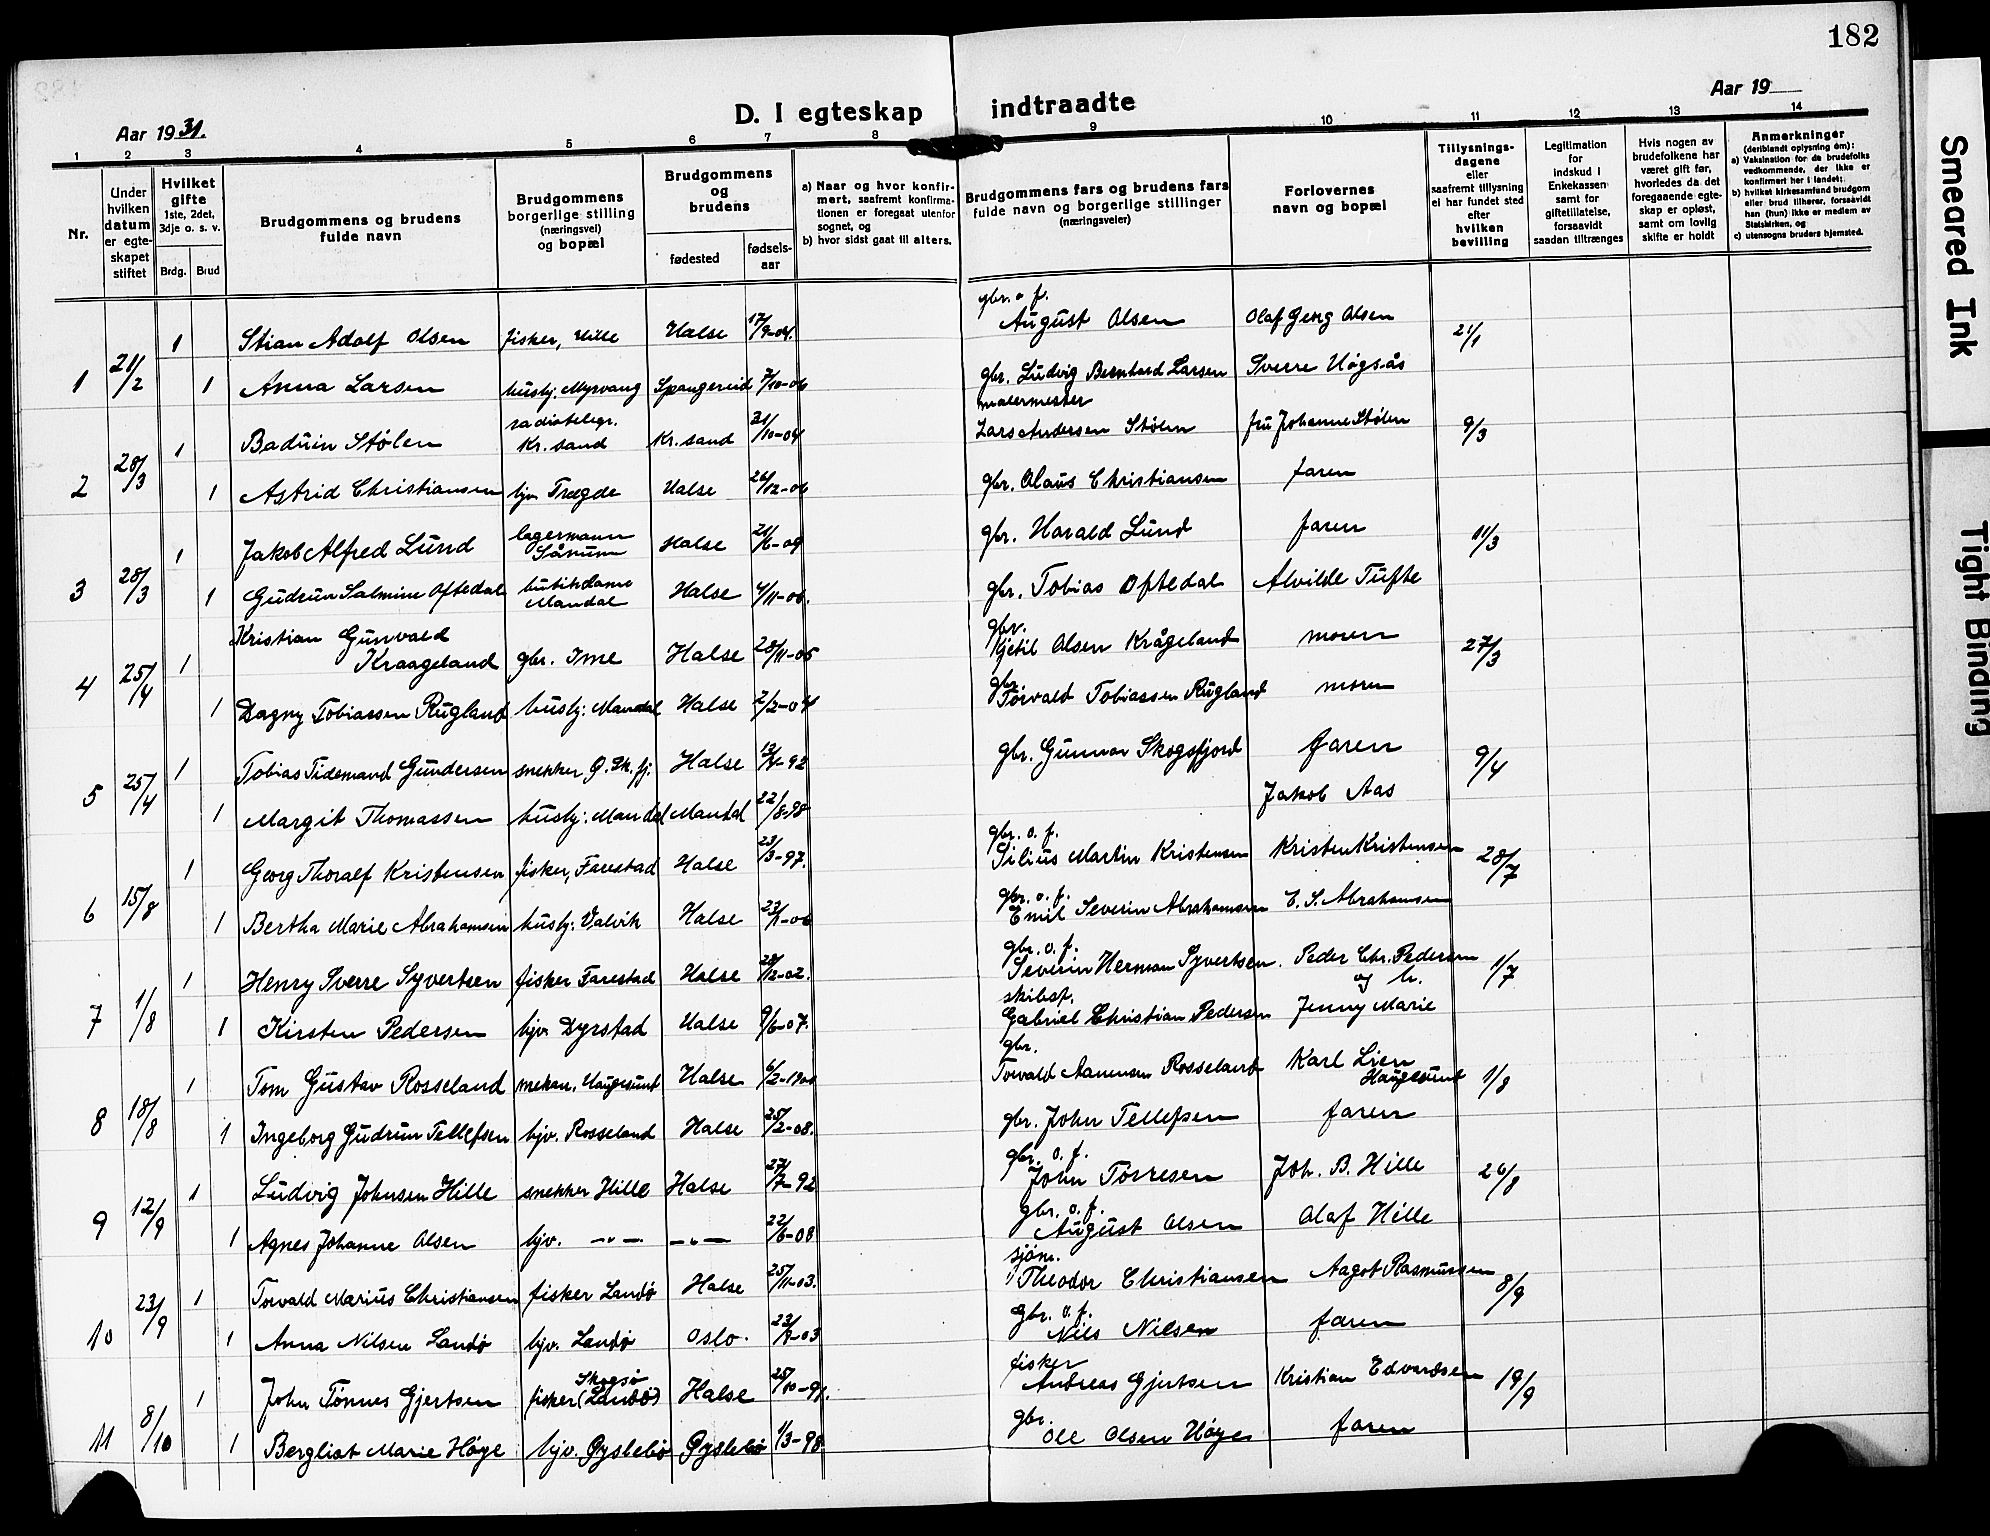 182
Aar 1931.
D. I egteskap indtraadte
Aar 19
1 2 3 4 5 6 7 8 9 10 11 12 13 14
Nr.
Under hvilken datum er egteskapet stiftet
Hvilket gifte 1ste, 2det, 3dje o. s. v.
Brdg. Brud
Brudgommens og brudens fulde navn
Brudgommens borgerlige stilling (næringsvei) og bopæl
Brudgommens og brudens
fødested
fødsels-aar
a) Naar og hvor konfirmert, saafremt konfirmationen er foregaat utenfor sognet, og
b) hvor sidst gaat til alters.
Brudgommens fars og brudens fars fulde navn og borgerlige stillinger (næringsveier)
Forlovernes navn og bopæl
Tillysningsdagene eller saafremt tillysning ei har fundet sted efter hvilken bevilling
Legitimation for indskud i Enkekassen samt for giftetillatelse, forsaavidt saadan tiltrænges
Hvis nogen av brudefolkene har været gift før, hvorledes da det foregaaende egteskap er opløst, samt om lovlig skifte er holdt
Anmerkninger (deriblandt oplysning om):
a) Vaksination for de brudefolks vedkommende, der ikke er konfirmert her i landet;
b) hvilket kirkesamfund brudgom eller brud tilhører, forsaavidt han (hun) ikke er medlem av Statskirken, og
c) utensogns bruders hjemsted.
1 21/2 1 Stian Adolf Olsen fisker, Hille Halse 17/9-04. gbr. o f. August Olsen Olaf Georg Olsen 21/1
1 Anna Larsen husbj. Myrvang Spangereid 7/10-06 gbr. Ludvig Bernhard Larsen Sverre Høgsås
2 28/3 1 Baduin Stølen radiotelegr. Kr.sand Kr.sand 31/10-04 malermester Lars Andersen Stølen fru Johanne Stølen 9/3
1 Astrid Christiansen hjv. Trægde Halse 26/12-06 gbr. Olaus Christiansen faren
3 28/3 1 Jakob Alfred Lund lagermann Sånum Halse 21/6-09 gbr. Harald Lund faren 11/3
1 Gudrun Salmine Oftedal butikdame Mandal Halse 4/11-06. gbr. Tobias Oftedal Alvilde Tufte
4 25/4 1 Kristian Gunvald Kraageland gbr. Ime Halse 28/11-05 gbr. Kjetil Olsen Krågeland moren 27/3
1 Dagny Tobiassen Rugland husbj: Mandal Halse 2/2-04 gbr. Torvald Tobiassen Rugland moren
5 25/4 1 Tobias Tidemand Gundersen snekker, Ø. Sk. fj. Halse -92 gbr. Gunnar Skogsfjord faren 9/4
1 Margit Thomassen husbj: Mandal Mandal 22/8-98 Jakob Aas
6 15/8 1 Georg Thoralf Kristensen fisker, Farestad Halse 23/3-97. gbr. o. f. Silius Martin Kristensen Kristen Kristensen 28/7
1 Bertha Marie Abrahamsen husbj: Valvik Halse 23/1-06 gbr. o. f. Emil Severin Abrahamsen E. S. Abrahamsen
7 1/8 1 Henry Sverre Syvertsen fisker Farestad Halse 28/12-02. gbr. o. f. Severin Herman Syvertsen. Peder Chr. Pedersen 1/7
1 Kirsten Pedersen hjv. Dyrstad Halse 9/6-07. skibsf. Gabriel Christian Pedersen og h. Jenny Marie
8 18/8 1 Tom Gustav Rosseland mekan. Haugesunt Halse 6/2-1900 gbr. Torvald Aanensen Rosseland Karl Lien Haugesunt 1/8
1 Ingeborg Gudrun Tellefsen hjv. Rosseland Halse 25/2-08. gbr. John Tellefsen faren
9 12/9 1 Ludvig Johnsen Hille snekker Hille Halse 27/7-92 gbr. o. f. John Torresen Joh. B. Hille 26/8
1 Agnes Johanne Olsen hjv. —"— —"— 22/6-08 gbr. o. f. August Olsen Olaf Hille
10 23/9 1 Torvald Marius Christiansen fisker Landø Halse 25/11-03. sjøm. Theodor Christiansen Aagot Rasmussen 8/9
1 Anna Nilsen Landø hjv. Landø Oslo. -03 gbr. o. f. Nils Nilsen faren
11 8/10 1 John Tønnes Gjertsen fisker Skogsø (Landø) Halse 25/10-91. fisker Andreas Gjertsen Kristian Edvardsen 19/9
1 Bergliot Marie Høye hjv. Øyslebø Øyslebø 1/3-98 gbr. Ole Olsen Høye faren
Smeared Ink
Tight Binding